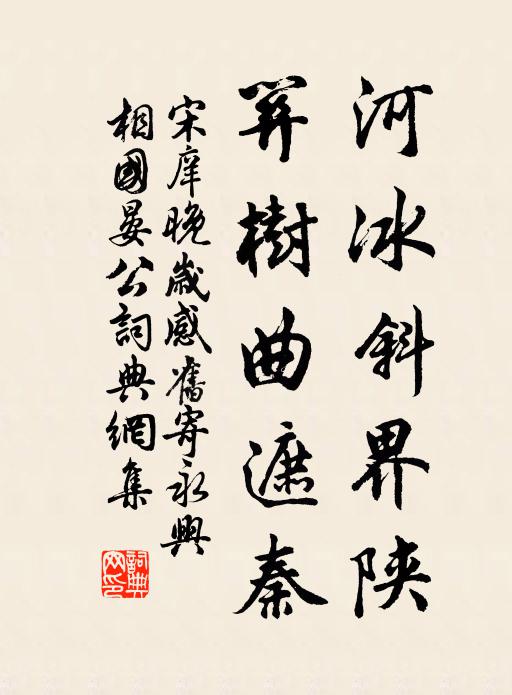 河冰斜界陝
弄樹曲遮秦
宋庠晚歲感舊寄永興
相國晏公詞典網集
詞典網印